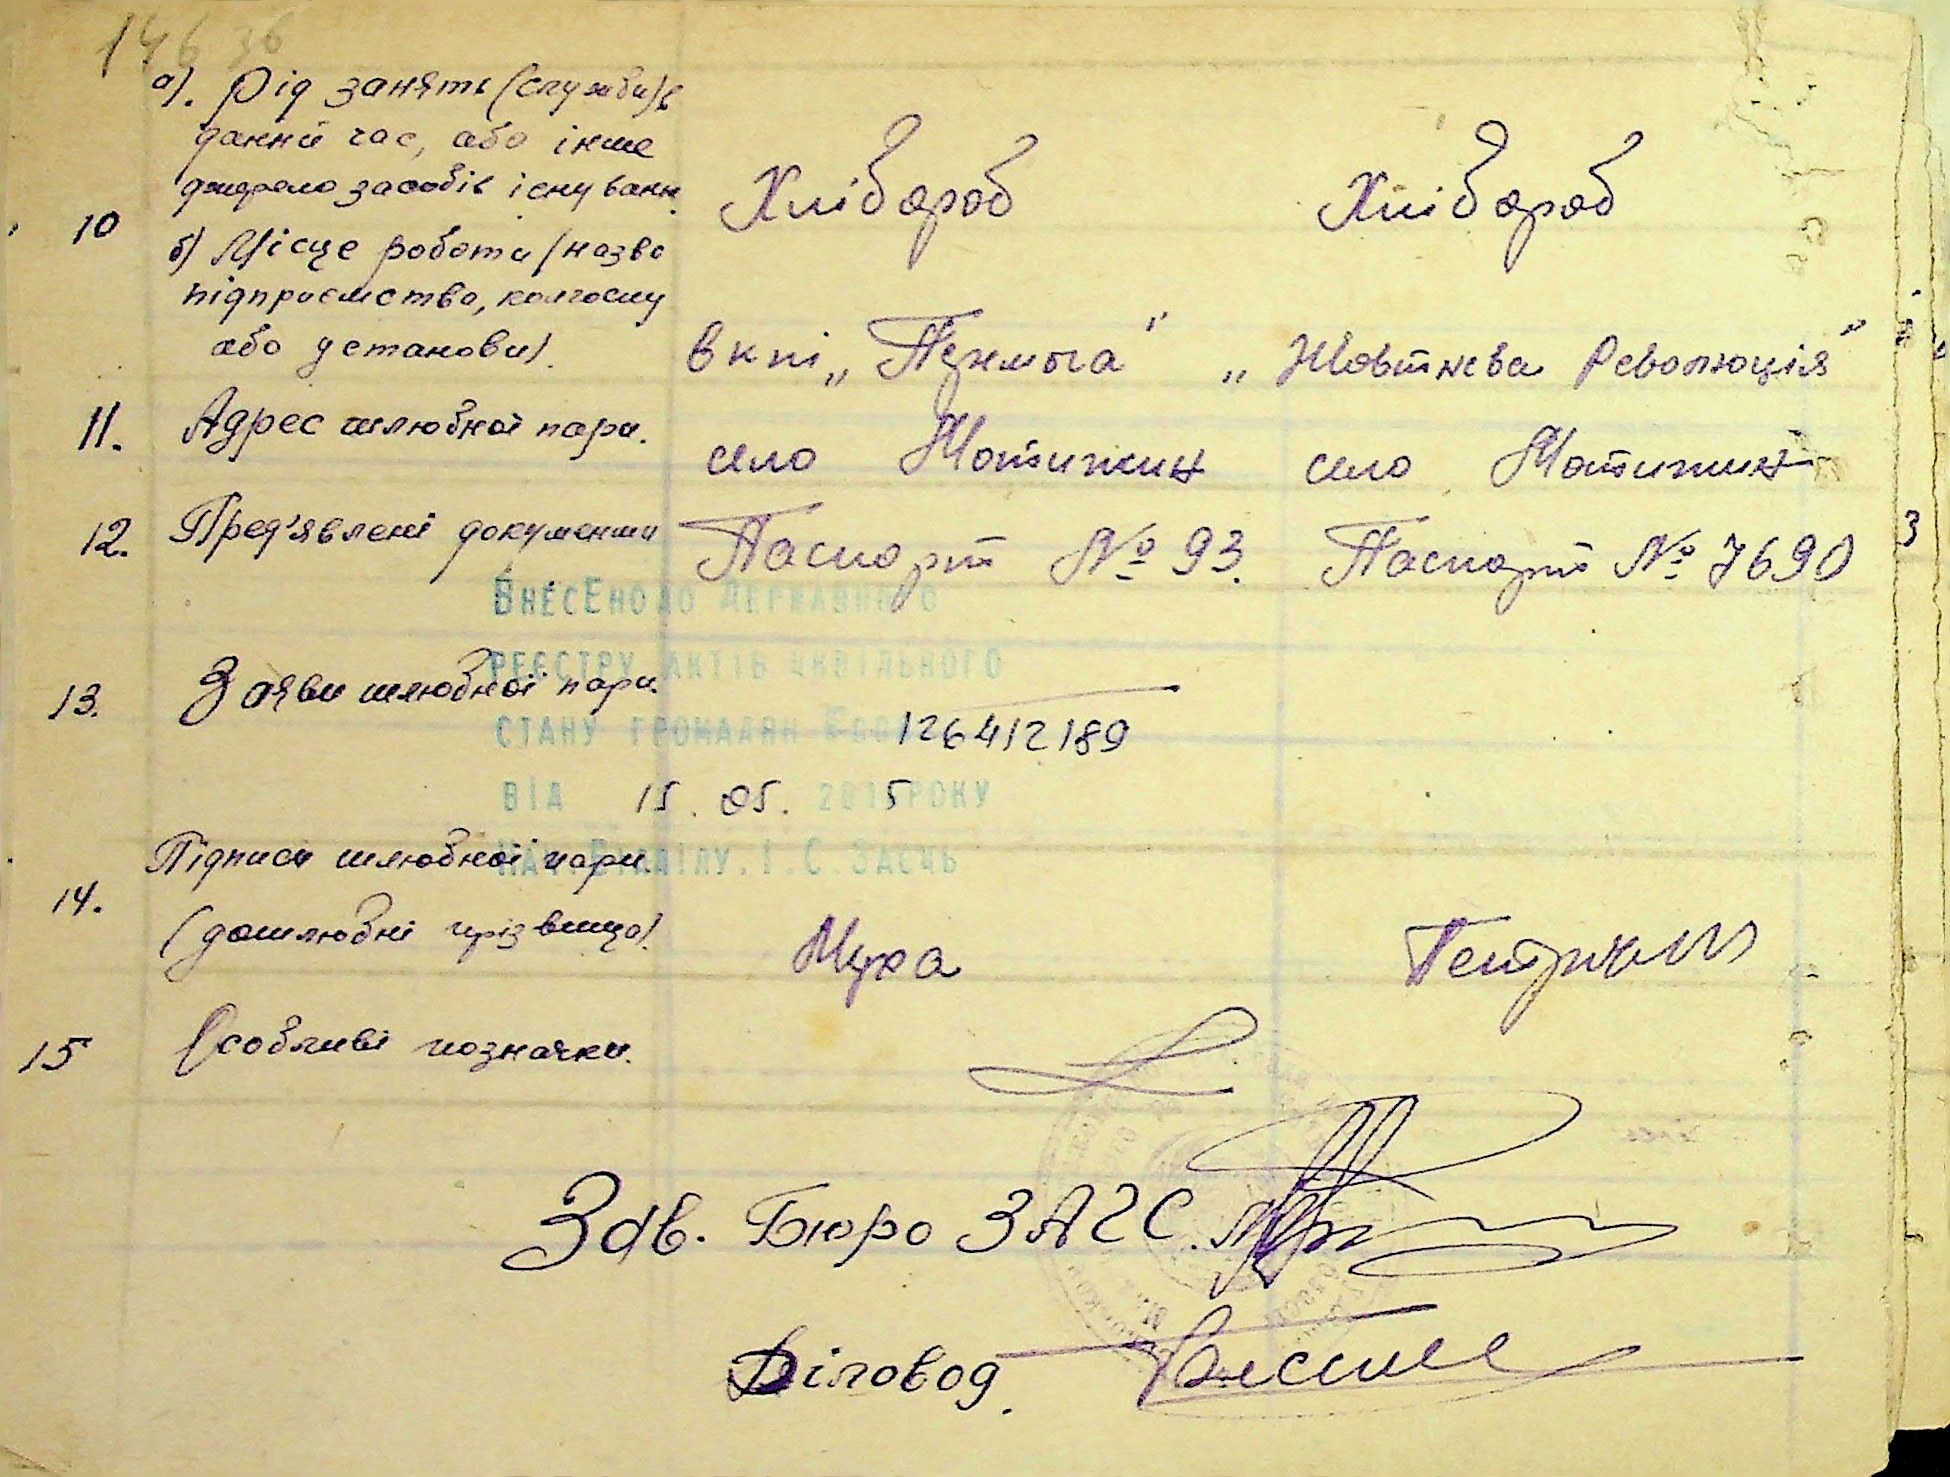 146 36
а). Рід занять (служби) в
данний час, або інше
джерело засобів існуванн.
Хлібороб Хлібороб
10
б) Місце роботи (назва
підприємства, колгоспу
або установи).
в кпі „Перемога" „Жовтнева Революція"
11. Адрес шлюбної пари. село Мотижин село Мотижин
12. Пред'явлені документи Паспорт № 93. Паспорт № 7690
ВнесЕно до Державного
реєстру актів цивільного
13. Заяви шлюбної пари.
стану громадян 126412189
від 15. 05. 2015 року
Нач. відділу. І. С. Заєць
14. Підписи шлюбної пари
(дошлюбні прізвища). Муха
15 Особливі позначки.
Зав. Бюро ЗАГС.
Діловод.